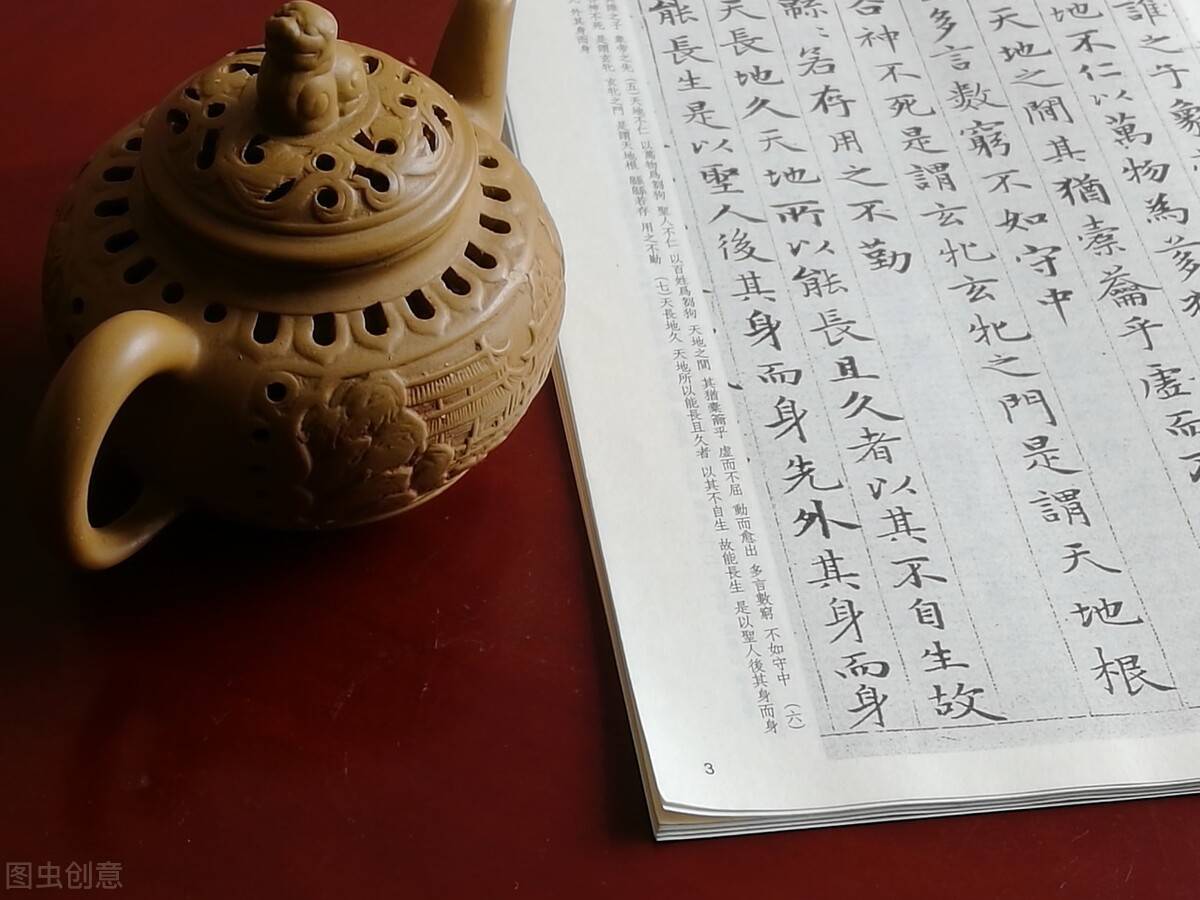 誰之子象
地不仁以萬物為芻
天地之間其猶橐籥乎虛而
多言數窮不如守中
谷神不死是謂玄牝玄牝之門是謂天地根
緜〻若存用之不勤
天長地久天地所以能長且久者以其不自生故
能長生是以聖人後其身而身先外其身而身
之子 象帝之先 (五)天地不仁 以萬物爲芻狗 聖人不仁 以百姓爲芻狗 天地之間 其猶橐籥乎 虛而不屈 動而愈出 多言數窮 不如守中 (六)
神不死 是謂玄牝 玄牝之門 是謂天地根 緜緜若存 用之不勤 (七)天長地久 天地所以能長且久者 以其不自生 故能長生 是以聖人後其身而身
外其身而身
3
图虫创意